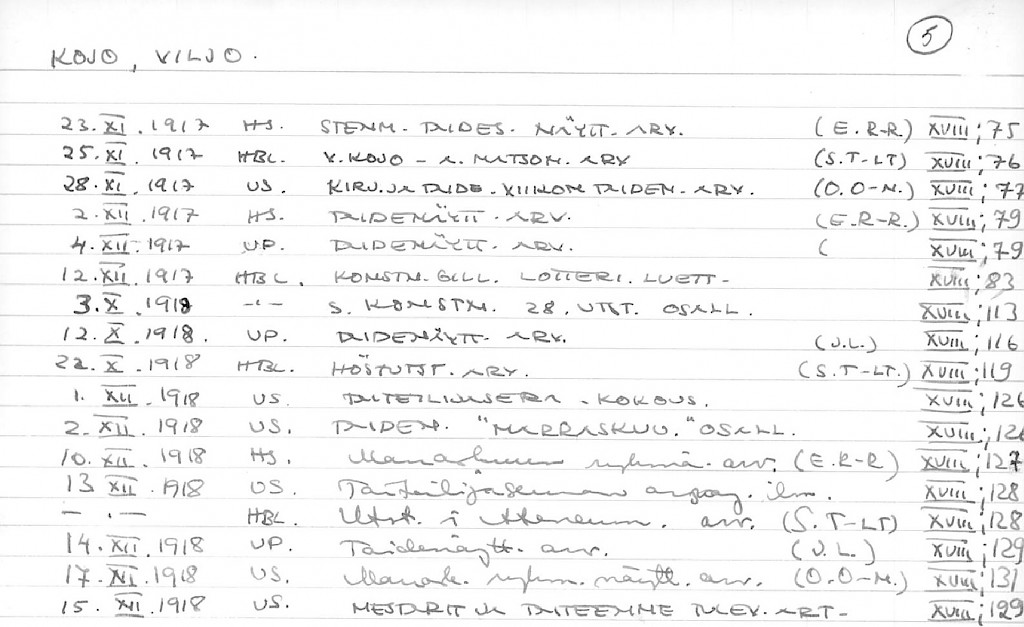 5
KOJO, VILJO.
23.XI.1917 HS. STENM. TAIDES. NÄYTT. ARV. (E.R-R) XVIII;75
25.XI.1917 HBL. V.KOJO - A.MATSON. ARV (S.T-LT) XVIII;76
28.XI.1917 US. KIRJ.JA TAIDE. VIIKON TAIDEN. ARV. (O.O-M.) XVIII;77
2.XII.1917 HS. TAIDENÄYTT. ARV. (E.R-R.) XVIII;79
4.XII.1917 UP. TAIDENÄYTT. ARV. ( XVIII;79
12.XII.1917 HBL. KONSTN.GILL. LOTTERI. LUETT- XVIII;83
3.X.1918 -"- S. KONSTN. 28. UTST. OSALL. XVIII;113
12.X.1918. UP. TAIDENÄYTT. ARV. (J.L.) XVIII;116
22.X.1918 HBL. HÖSTUTST. ARV. (S.T-LT.) XVIII;119
1.XII.1918 US. TAITEILIJASEURA - KOKOUS. XVIII;126
2.XII.1918 US. TAIDEN. "MARRASKUU." OSALL. XVIII;126
10.XII.1918 HS. Marraskuun ryhmä. arv. (E.R-R) XVIII;127
13 XII.1918 US. Taiteilijaseuran arpaj. ilm. XVIII;128
- " - HBL. Utst. i Ateneum. arv. (S.T-LT) XVIII;128
14.XII.1918 UP. Taidenäytt. arv. (J.L.) XVIII;129
17.XII.1918 US. Marrask. ryhm. näytt. arv. (O.O-M.) XVIII;131
15.XII.1918 US. MESTARIT JA TAITEEMME TULEV. ART- XVIII;129